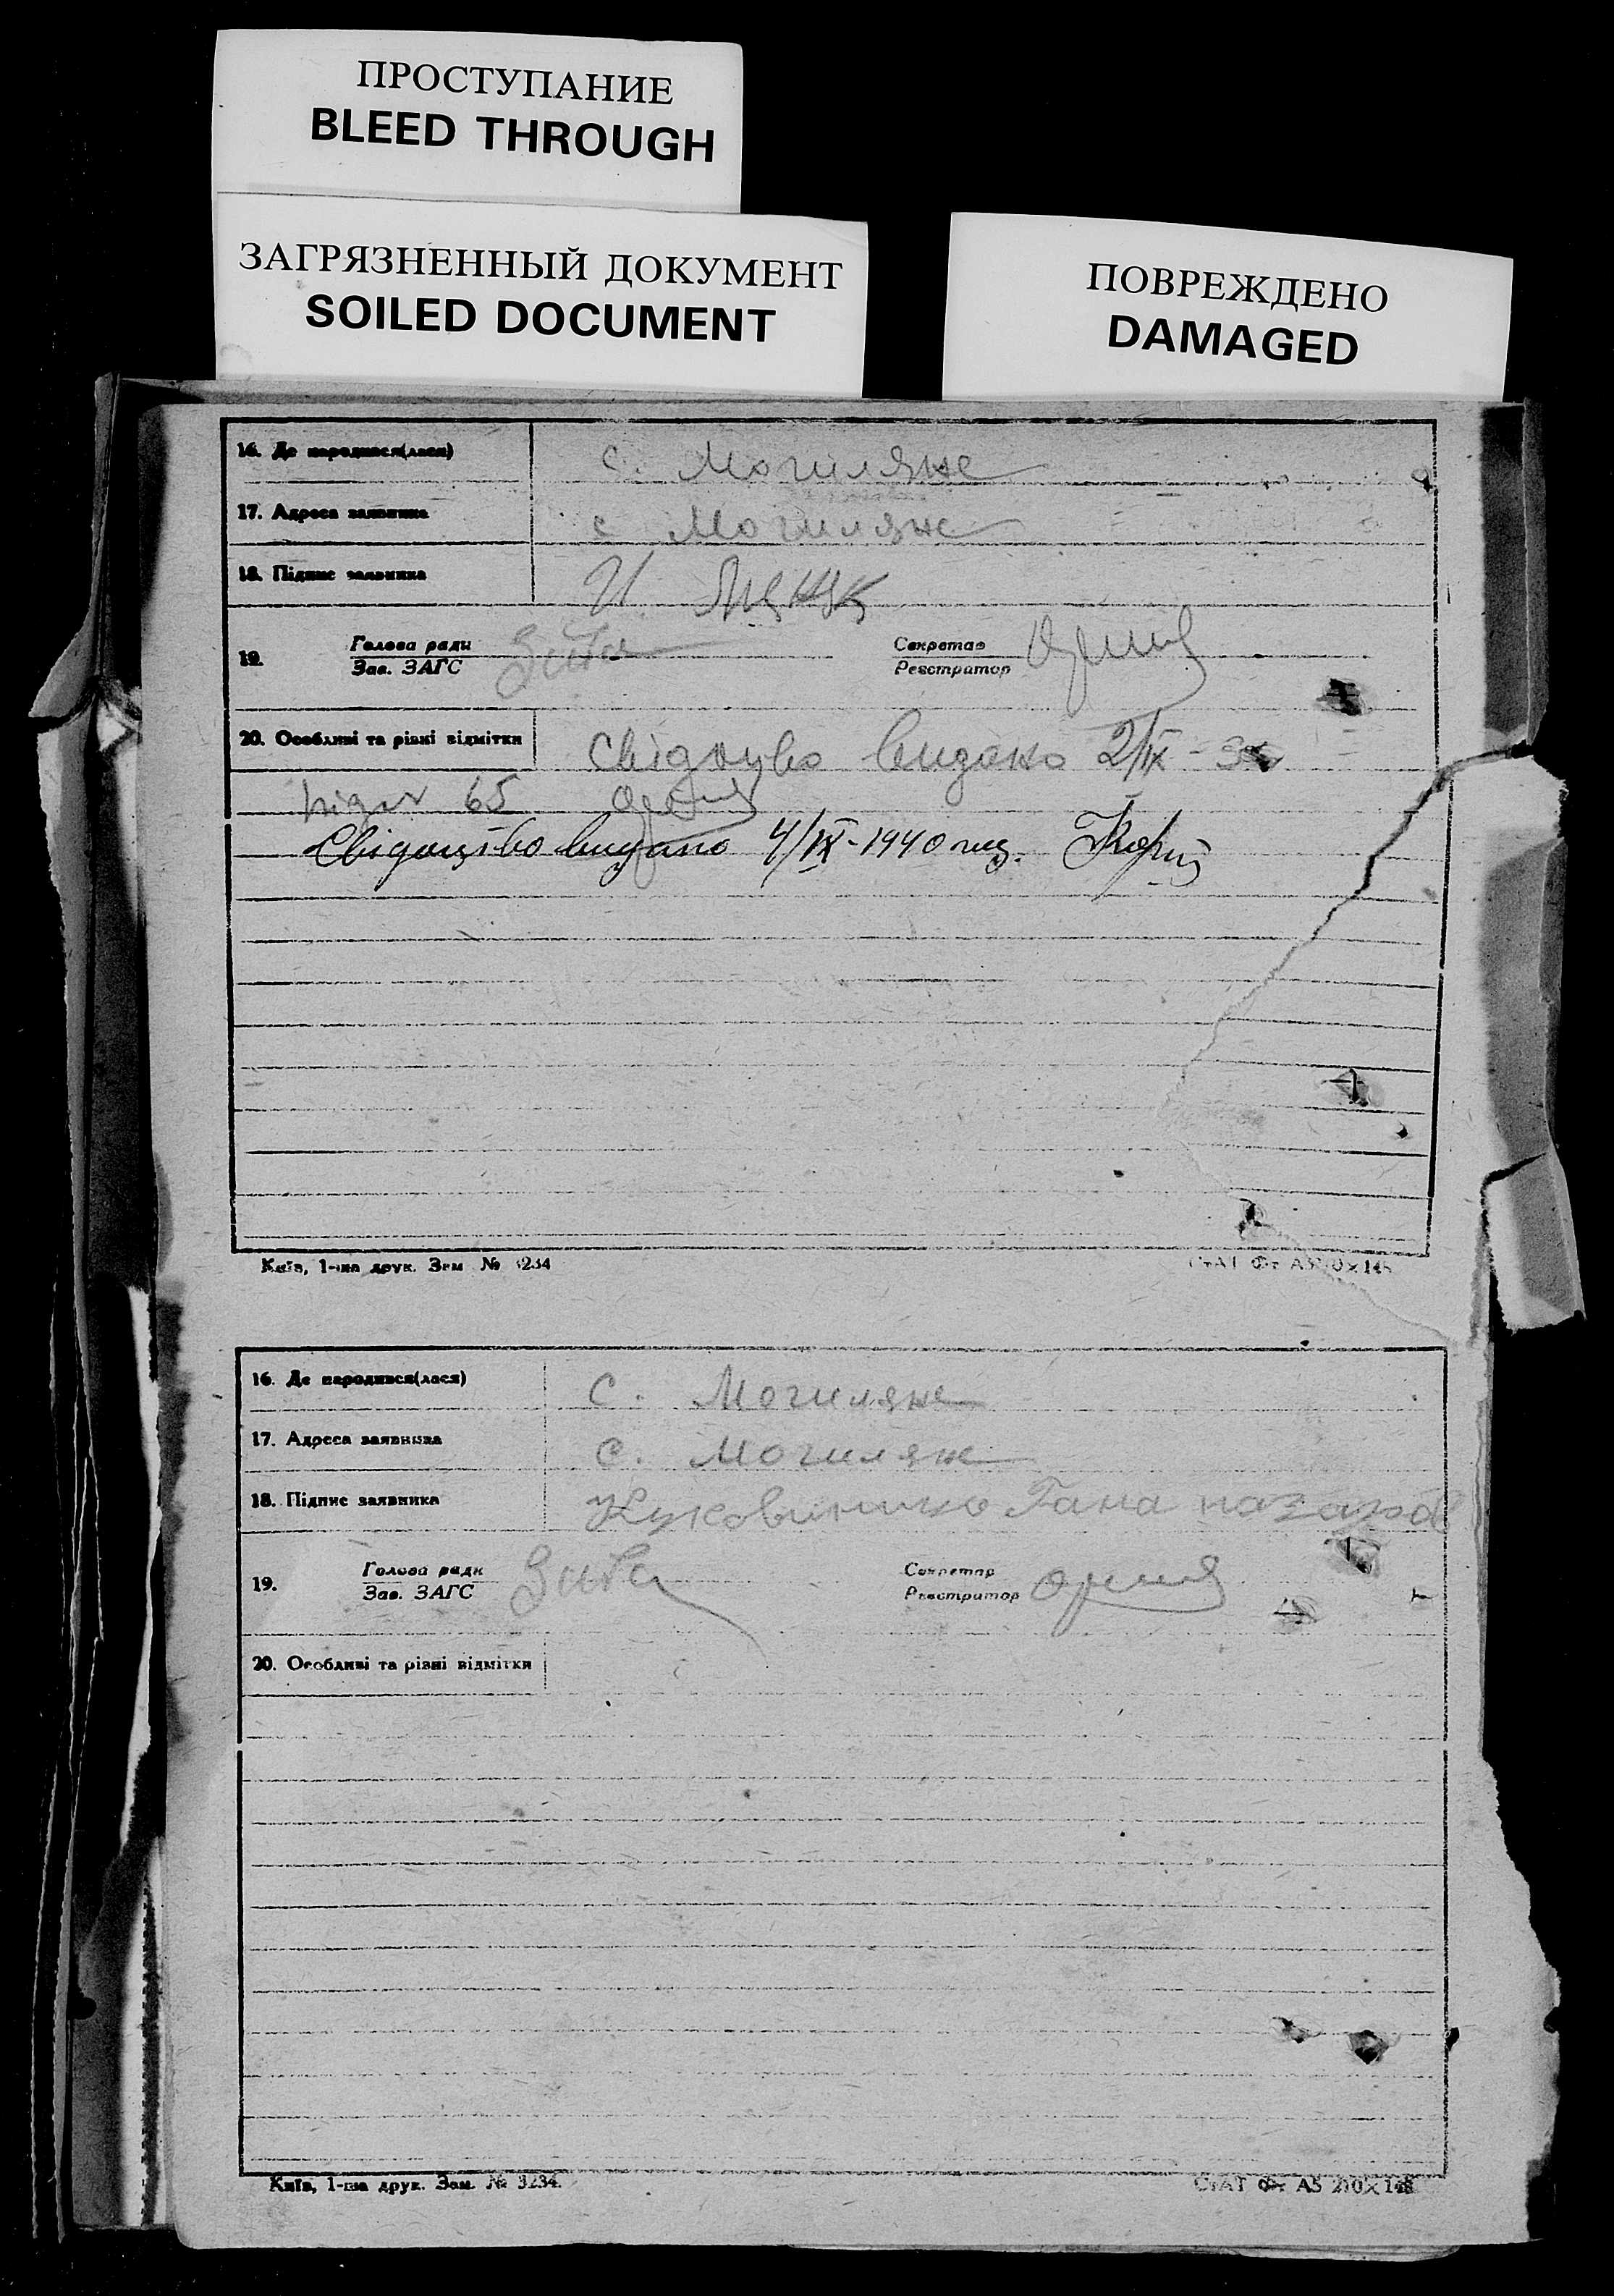 ПРОСТУПАНИЕ
BLEED THROUGH
ЗАГРЯЗНЕННЫЙ ДОКУМЕНТ
SOILED DOCUMENT
ПОВРЕЖДЕНО
DAMAGED
16. Де народився(лася) с. Могиляне
17. Адреса заявника с Могиляне
18. Підпис заявника И
19. Голова ради Секретар
Зав. ЗАГС Реєстратор
20. Особливі та різні відмітки видано 2/IX-
65
Свідоцтво видано 4/IX-1940
Київ, 1-ша друк. Зам № 3234 СтАТ Фт А5 210×148
16. Де народився(лася) с. Могиляне
17. Адреса заявника с. Могиляне
18. Підпис заявника Гана
19. Голова ради Секретар
Зав. ЗАГС Реєстратор
20. Особливі та різні відмітки
Київ, 1-ша друк. Зам. № 3234. СтАТ Фт А5 210×148